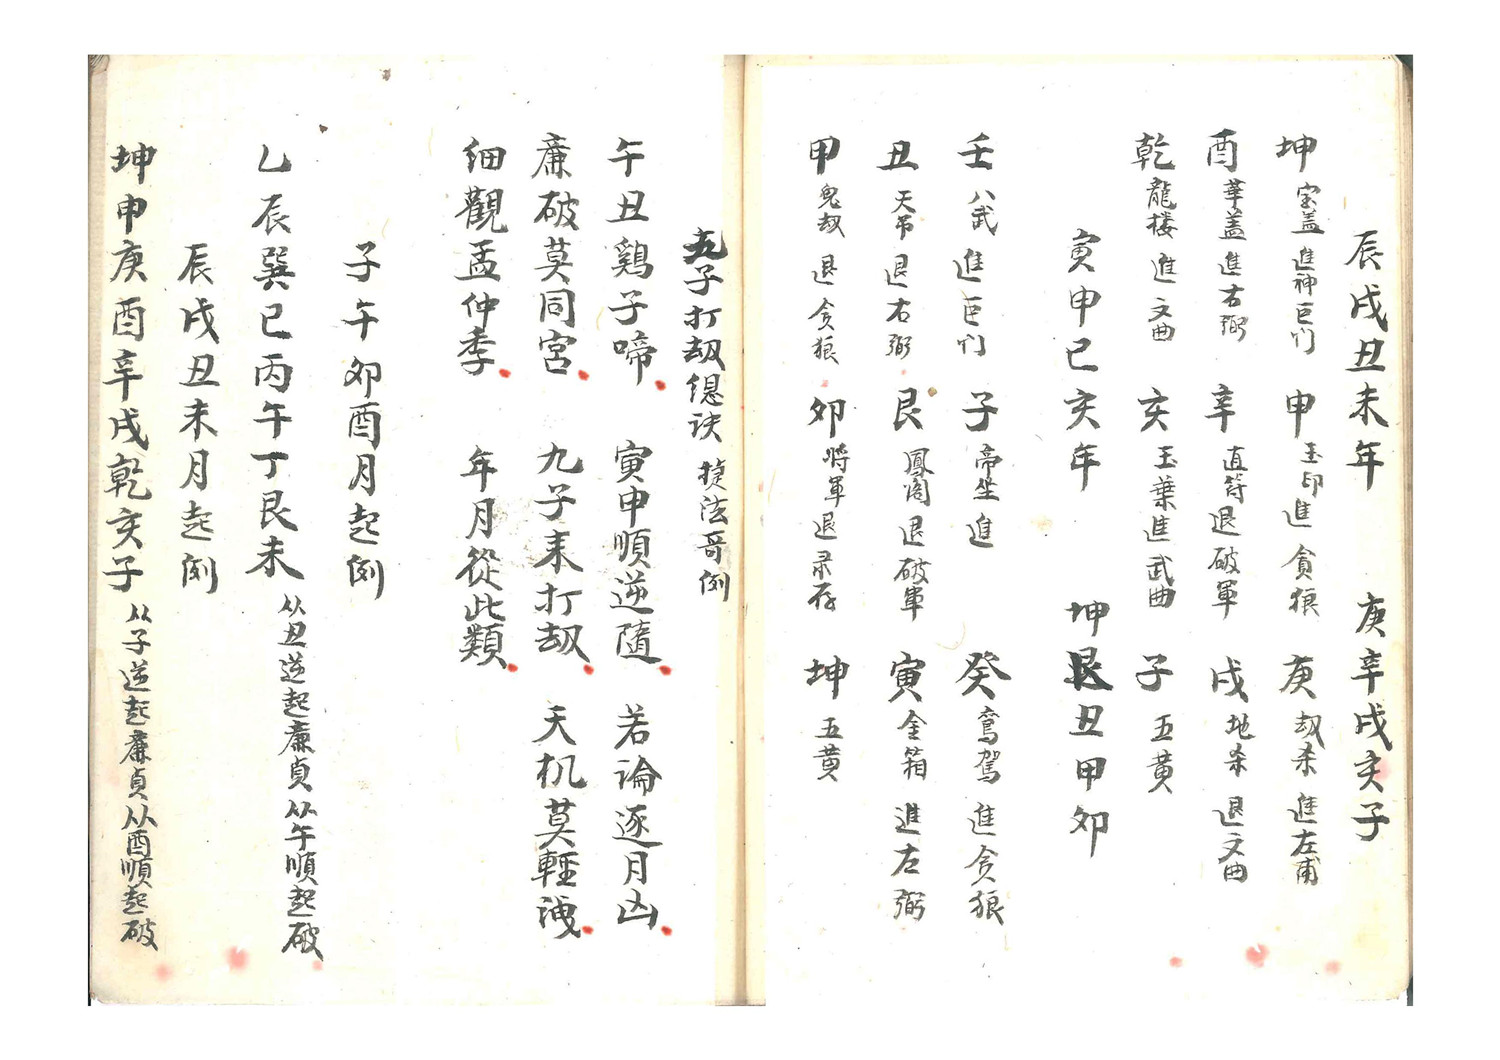 辰戌丑未年　庚辛戌亥子
坤宝盖進神巨门　申玉印進贪狼　庚劫杀進左甫
酉華盖進右弼　辛直符退破軍　戌地杀退文曲
乾龍楼進文曲　亥玉葉進武曲　子五黄
寅申巳亥年　坤艮丑甲卯
壬八武進巨门　子帝坐進　癸鸾驾進贪狼
丑天吊退右弼　艮鳳阁退破軍　寅金箱進左弼
甲鬼劫退贪狼　卯將軍退录存　坤五黄
九子打劫總诀　捷法哥例
午丑鷄子啼　寅申順逆隨　若論逐月凶
廉破莫同宮　九子来打劫　天机莫輕洩
细觀孟仲季　年月從此類
子午卯酉月起例
乙辰巽巳丙午丁艮未　从丑逆起廉貞从午順起破
辰戌丑未月起例
坤申庚酉辛戌乾亥子　从子逆起廉貞从酉順起破